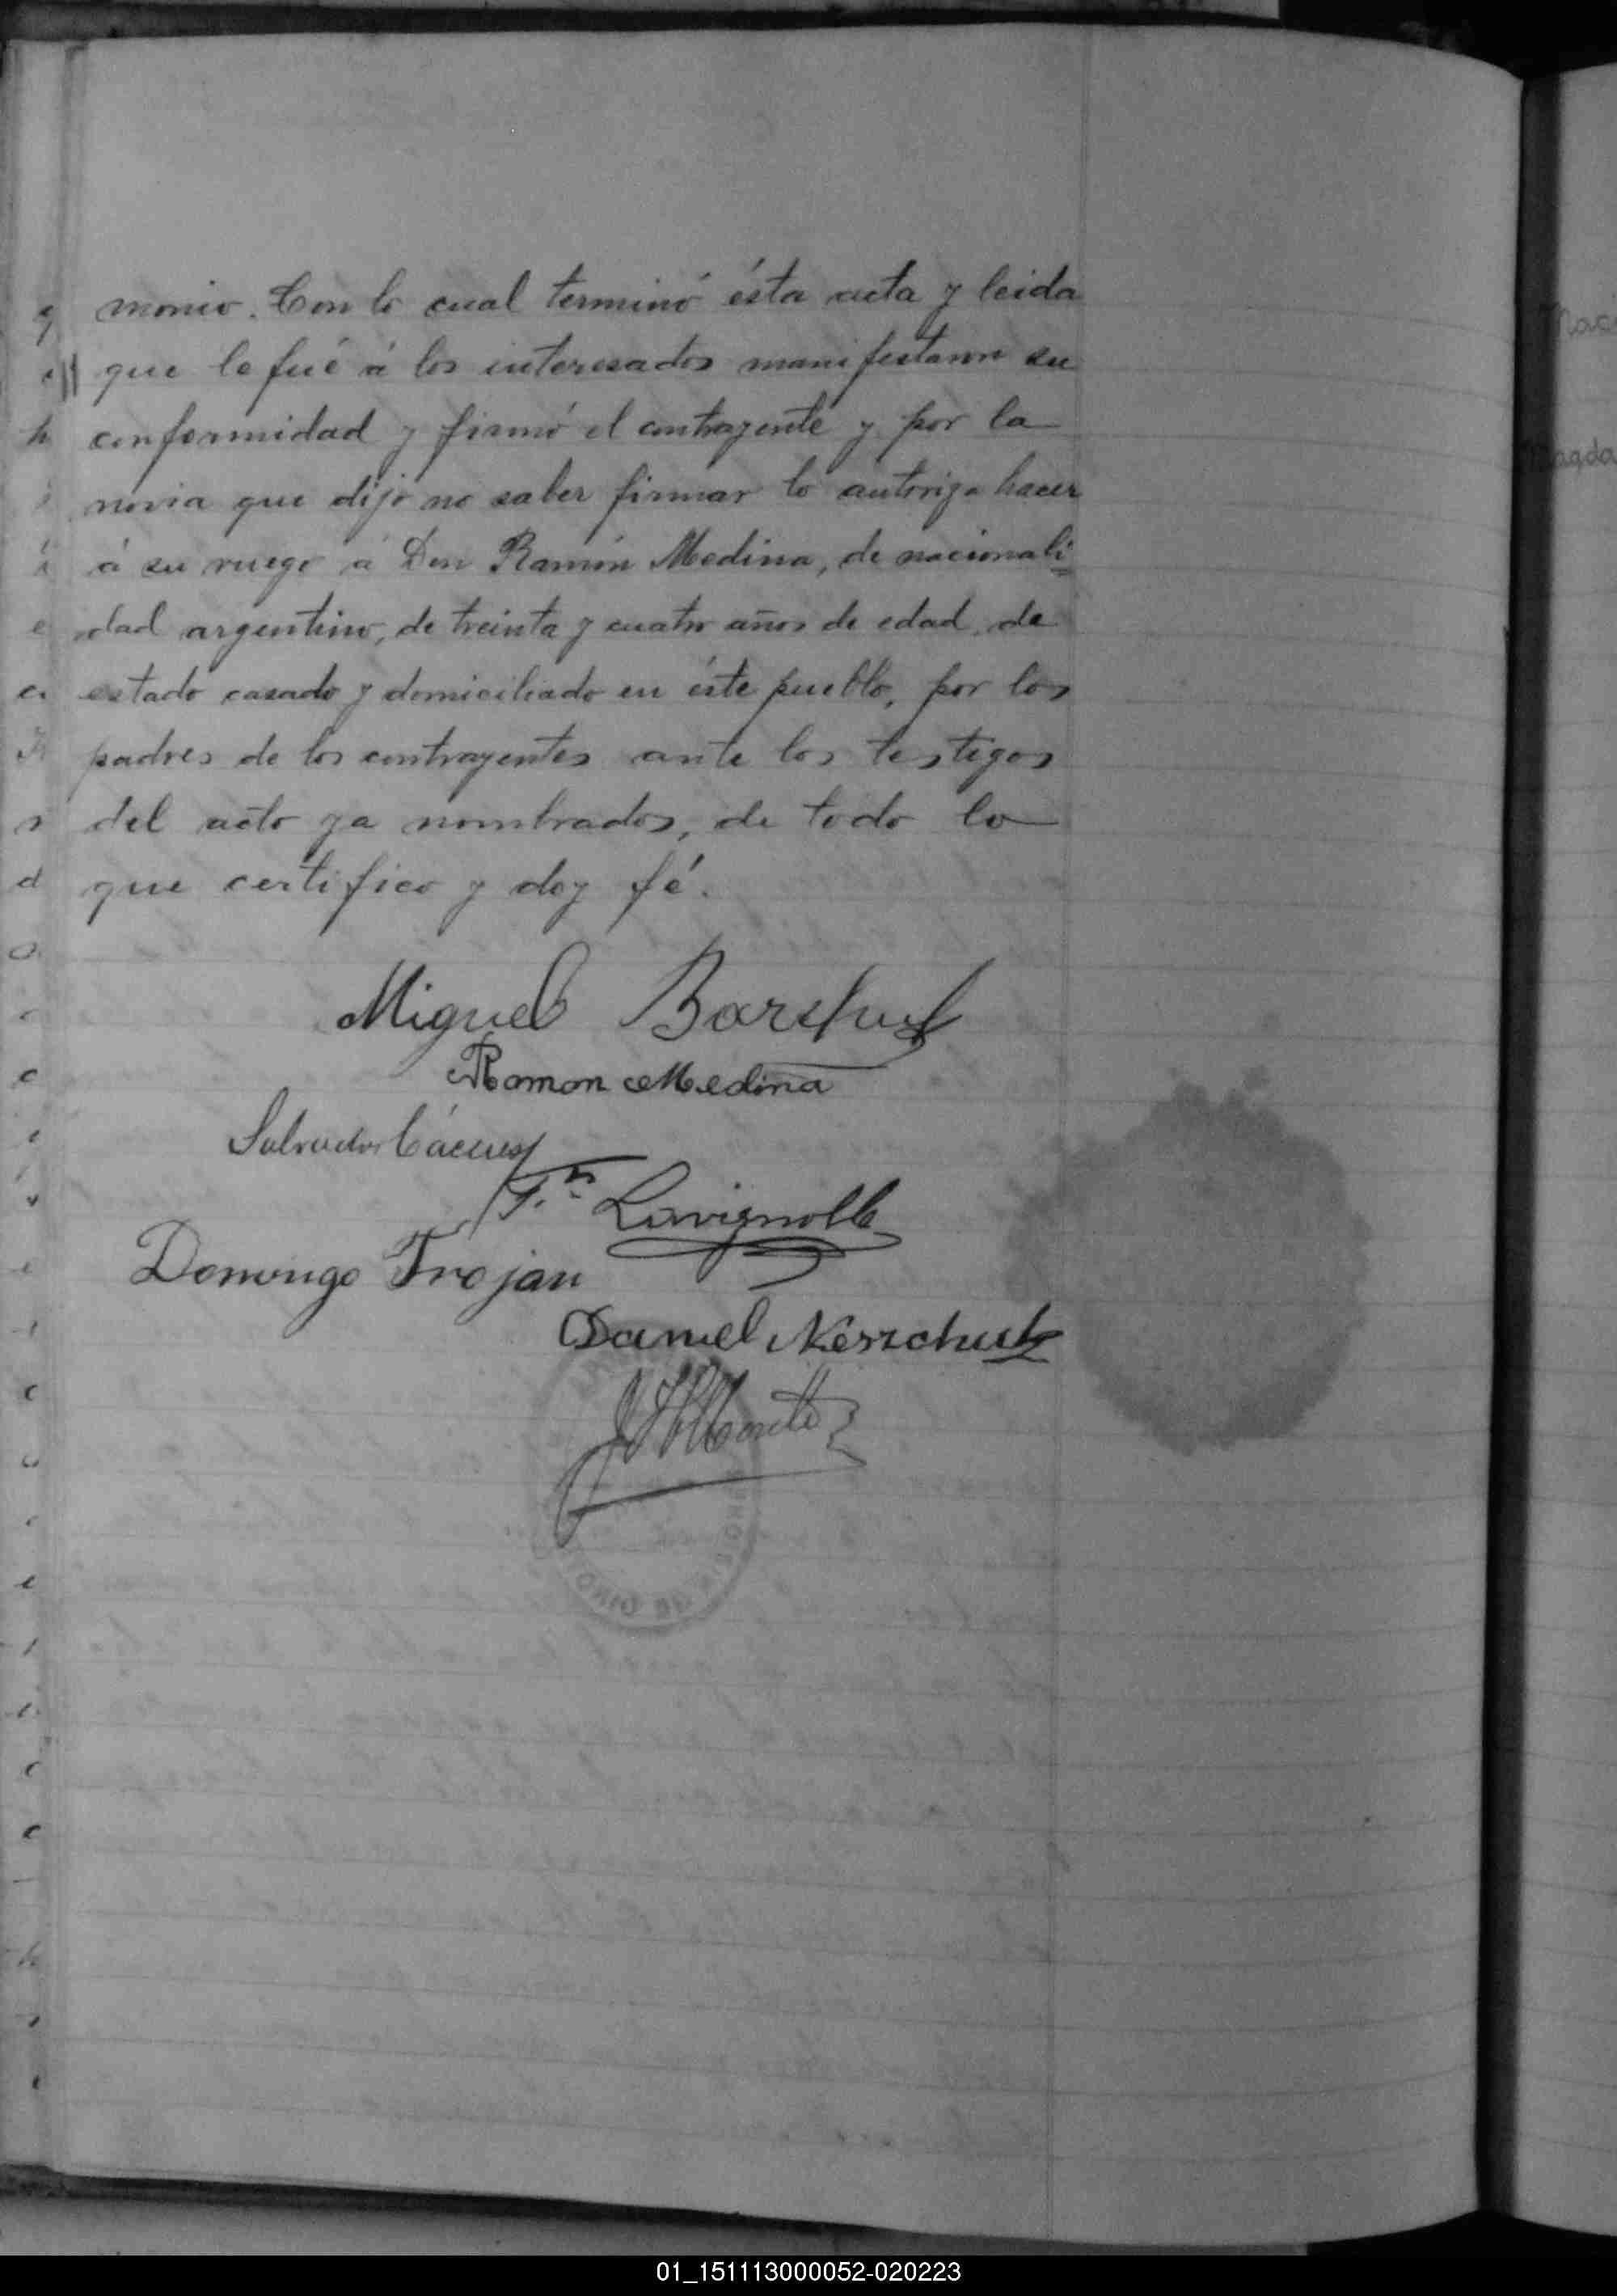 monio. Con lo cual terminó ésta acta y leida
que le fué á los interesados manifestaron su
conformidad y firmó el contrayente y por la
novia que dijo no saber firmar lo autoriza hacer
á su ruego á Don Ramón Medina, de nacionali=
dad argentino, de treinta y cuatro años de edad, de
estado casado y domiciliado en éste pueblo, por los
padres de los contrayentes ante los testigos
del acto ya nombrados, de todo lo
que certifico y doy fé.
Miguel
Ramon Medina
Salvador Cáceres
Lavignolle
Domingo Trojan
Daniel
01_151113000052-020223